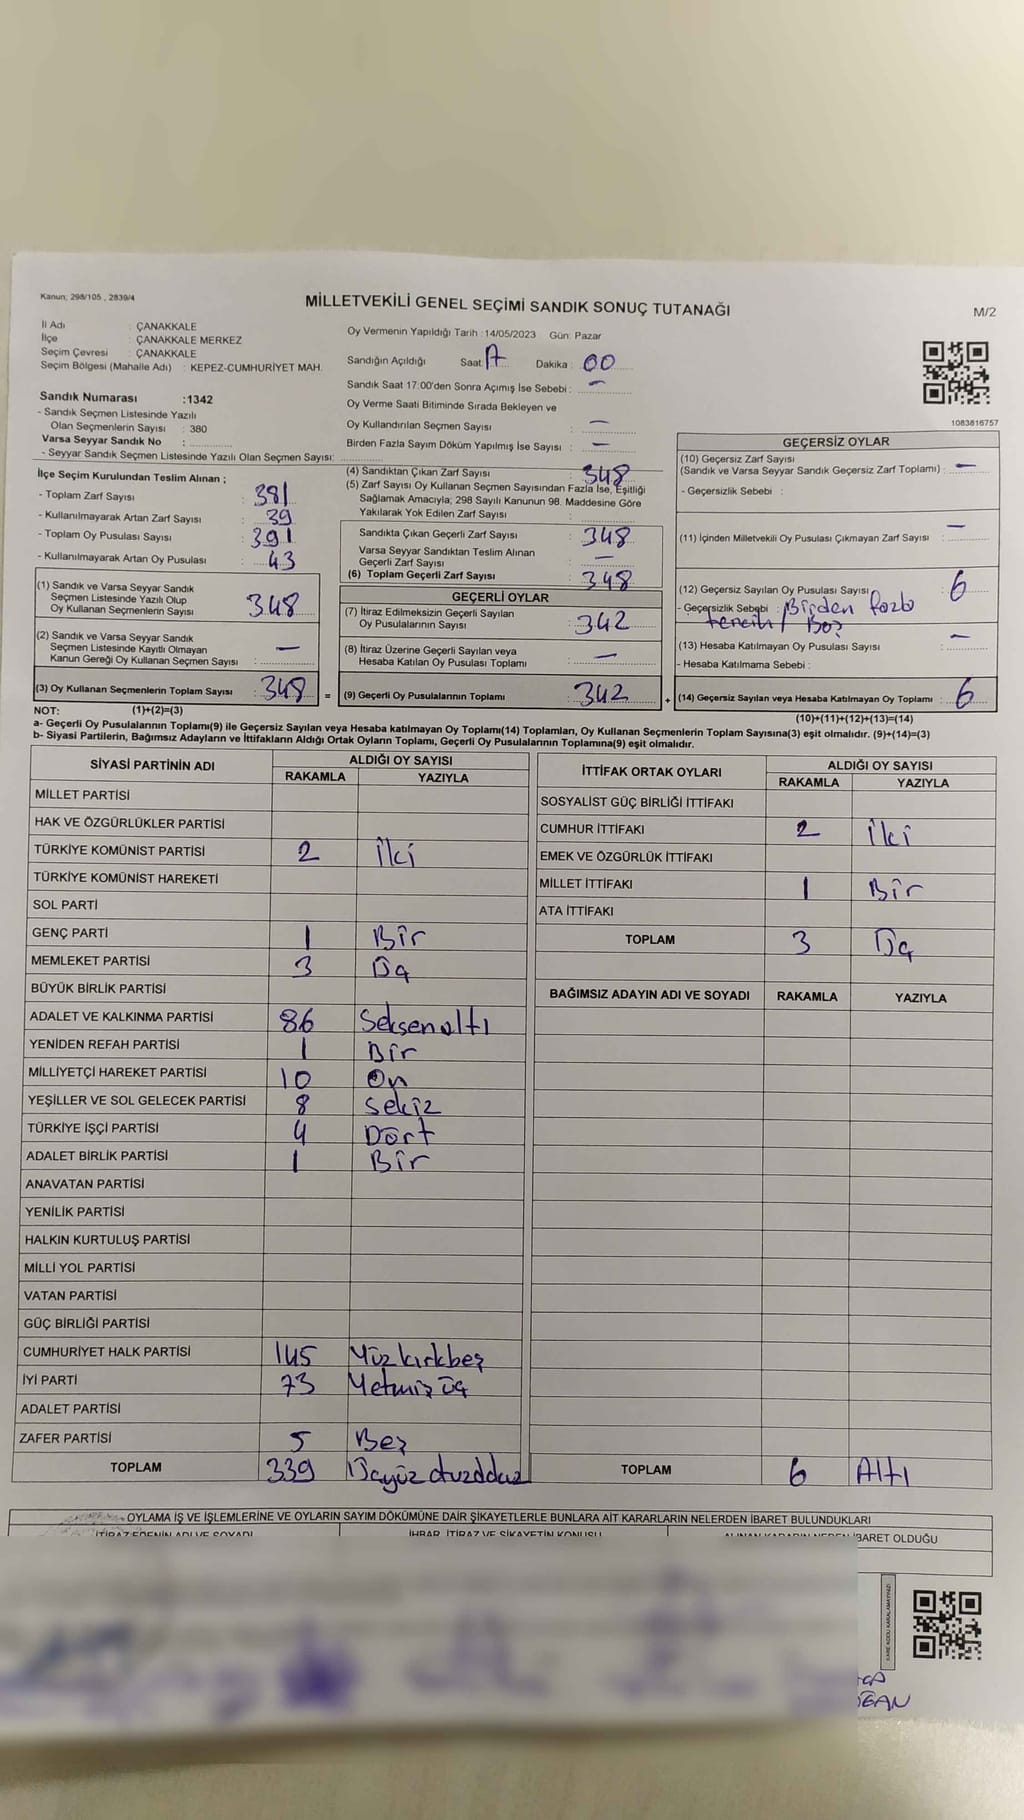 Kanun; 298/105 , 2839/4
MİLLETVEKİLİ GENEL SEÇİMİ SANDIK SONUÇ TUTANAĞI
M/2
İl Adı : ÇANAKKALE
İlçe : ÇANAKKALE MERKEZ
Seçim Çevresi : ÇANAKKALE
Seçim Bölgesi (Mahalle Adı) : KEPEZ-CUMHURİYET MAH.
Sandık Numarası :1342
- Sandık Seçmen Listesinde Yazılı
Olan Seçmenlerin Sayısı : 380
Varsa Seyyar Sandık No :
- Seyyar Sandık Seçmen Listesinde Yazılı Olan Seçmen Sayısı:
Oy Vermenin Yapıldığı Tarih :14/05/2023 Gün: Pazar
Sandığın Açıldığı Saat 17 Dakika : 00
Sandık Saat 17:00'den Sonra Açımış İse Sebebi : —
Oy Verme Saati Bitiminde Sırada Bekleyen ve
Oy Kullandırılan Seçmen Sayısı : —
Birden Fazla Sayım Döküm Yapılmış İse Sayısı : —
1083816757
İlçe Seçim Kurulundan Teslim Alınan ;
- Toplam Zarf Sayısı : 381
- Kullanılmayarak Artan Zarf Sayısı : 39
- Toplam Oy Pusulası Sayısı : 391
- Kullanılmayarak Artan Oy Pusulası : 43
(1) Sandık ve Varsa Seyyar Sandık
Seçmen Listesinde Yazılı Olup
Oy Kullanan Seçmenlerin Sayısı : 348
(2) Sandık ve Varsa Seyyar Sandık
Seçmen Listesinde Kayıtlı Olmayan
Kanun Gereği Oy Kullanan Seçmen Sayısı : —
(3) Oy Kullanan Seçmenlerin Toplam Sayısı : 348 =
(4) Sandıktan Çıkan Zarf Sayısı : 348
(5) Zarf Sayısı Oy Kullanan Seçmen Sayısından Fazla İse, Eşitliği
Sağlamak Amacıyla; 298 Sayılı Kanunun 98. Maddesine Göre
Yakılarak Yok Edilen Zarf Sayısı :
Sandıkta Çıkan Geçerli Zarf Sayısı : 348
Varsa Seyyar Sandıktan Teslim Alınan
Geçerli Zarf Sayısı : —
(6) Toplam Geçerli Zarf Sayısı : 348
GEÇERLİ OYLAR
(7) İtiraz Edilmeksizin Geçerli Sayılan
Oy Pusulalarının Sayısı : 342
(8) İtiraz Üzerine Geçerli Sayılan veya
Hesaba Katılan Oy Pusulası Toplamı : —
(9) Geçerli Oy Pusulalarının Toplamı : 342 +
GEÇERSİZ OYLAR
(10) Geçersiz Zarf Sayısı
(Sandık ve Varsa Seyyar Sandık Geçersiz Zarf Toplamı) : —
- Geçersizlik Sebebi :
(11) İçinden Milletvekili Oy Pusulası Çıkmayan Zarf Sayısı : —
(12) Geçersiz Sayılan Oy Pusulası Sayısı : 6
- Geçersizlik Sebebi : Birden fazla
tercih / Boş
(13) Hesaba Katılmayan Oy Pusulası Sayısı : —
- Hesaba Katılmama Sebebi :
(14) Geçersiz Sayılan veya Hesaba Katılmayan Oy Toplamı : 6
NOT: (1)+(2)=(3)
(10)+(11)+(12)+(13)=(14)
a- Geçerli Oy Pusulalarının Toplamı(9) ile Geçersiz Sayılan veya Hesaba katılmayan Oy Toplamı(14) Toplamları, Oy Kullanan Seçmenlerin Toplam Sayısına(3) eşit olmalıdır. (9)+(14)=(3)
b- Siyasi Partilerin, Bağımsız Adayların ve İttifakların Aldığı Ortak Oyların Toplamı, Geçerli Oy Pusulalarının Toplamına(9) eşit olmalıdır.
SİYASİ PARTİNİN ADI ALDIĞI OY SAYISI
RAKAMLA YAZIYLA
MİLLET PARTİSİ
HAK VE ÖZGÜRLÜKLER PARTİSİ
TÜRKİYE KOMÜNİST PARTİSİ 2 İki
TÜRKİYE KOMÜNİST HAREKETİ
SOL PARTİ
GENÇ PARTİ 1 Bir
MEMLEKET PARTİSİ 3 Üç
BÜYÜK BİRLİK PARTİSİ
ADALET VE KALKINMA PARTİSİ 86 Seksenaltı
YENİDEN REFAH PARTİSİ 1 Bir
MİLLİYETÇİ HAREKET PARTİSİ 10 On
YEŞİLLER VE SOL GELECEK PARTİSİ 8 Sekiz
TÜRKİYE İŞÇİ PARTİSİ 4 Dört
ADALET BİRLİK PARTİSİ 1 Bir
ANAVATAN PARTİSİ
YENİLİK PARTİSİ
HALKIN KURTULUŞ PARTİSİ
MİLLİ YOL PARTİSİ
VATAN PARTİSİ
GÜÇ BİRLİĞİ PARTİSİ
CUMHURİYET HALK PARTİSİ 145 Yüzkırkbeş
İYİ PARTİ 73 Yetmiş üç
ADALET PARTİSİ
ZAFER PARTİSİ 5 Beş
TOPLAM 339 Üçyüz otuzdokuz
İTTİFAK ORTAK OYLARI ALDIĞI OY SAYISI
RAKAMLA YAZIYLA
SOSYALİST GÜÇ BİRLİĞİ İTTİFAKI
CUMHUR İTTİFAKI 2 İki
EMEK VE ÖZGÜRLÜK İTTİFAKI
MİLLET İTTİFAKI 1 Bir
ATA İTTİFAKI
TOPLAM 3 Üç
BAĞIMSIZ ADAYIN ADI VE SOYADI RAKAMLA YAZIYLA
TOPLAM 6 Altı
OYLAMA İŞ VE İŞLEMLERİNE VE OYLARIN SAYIM DÖKÜMÜNE DAİR ŞİKAYETLERLE BUNLARA AİT KARARLARIN NELERDEN İBARET BULUNDUKLARI
İTİRAZ EDENİN ADI VE SOYADI İHBAR, İTİRAZ VE ŞİKAYETİN KONUSU ALINAN KARARIN NEDEN İBARET OLDUĞU